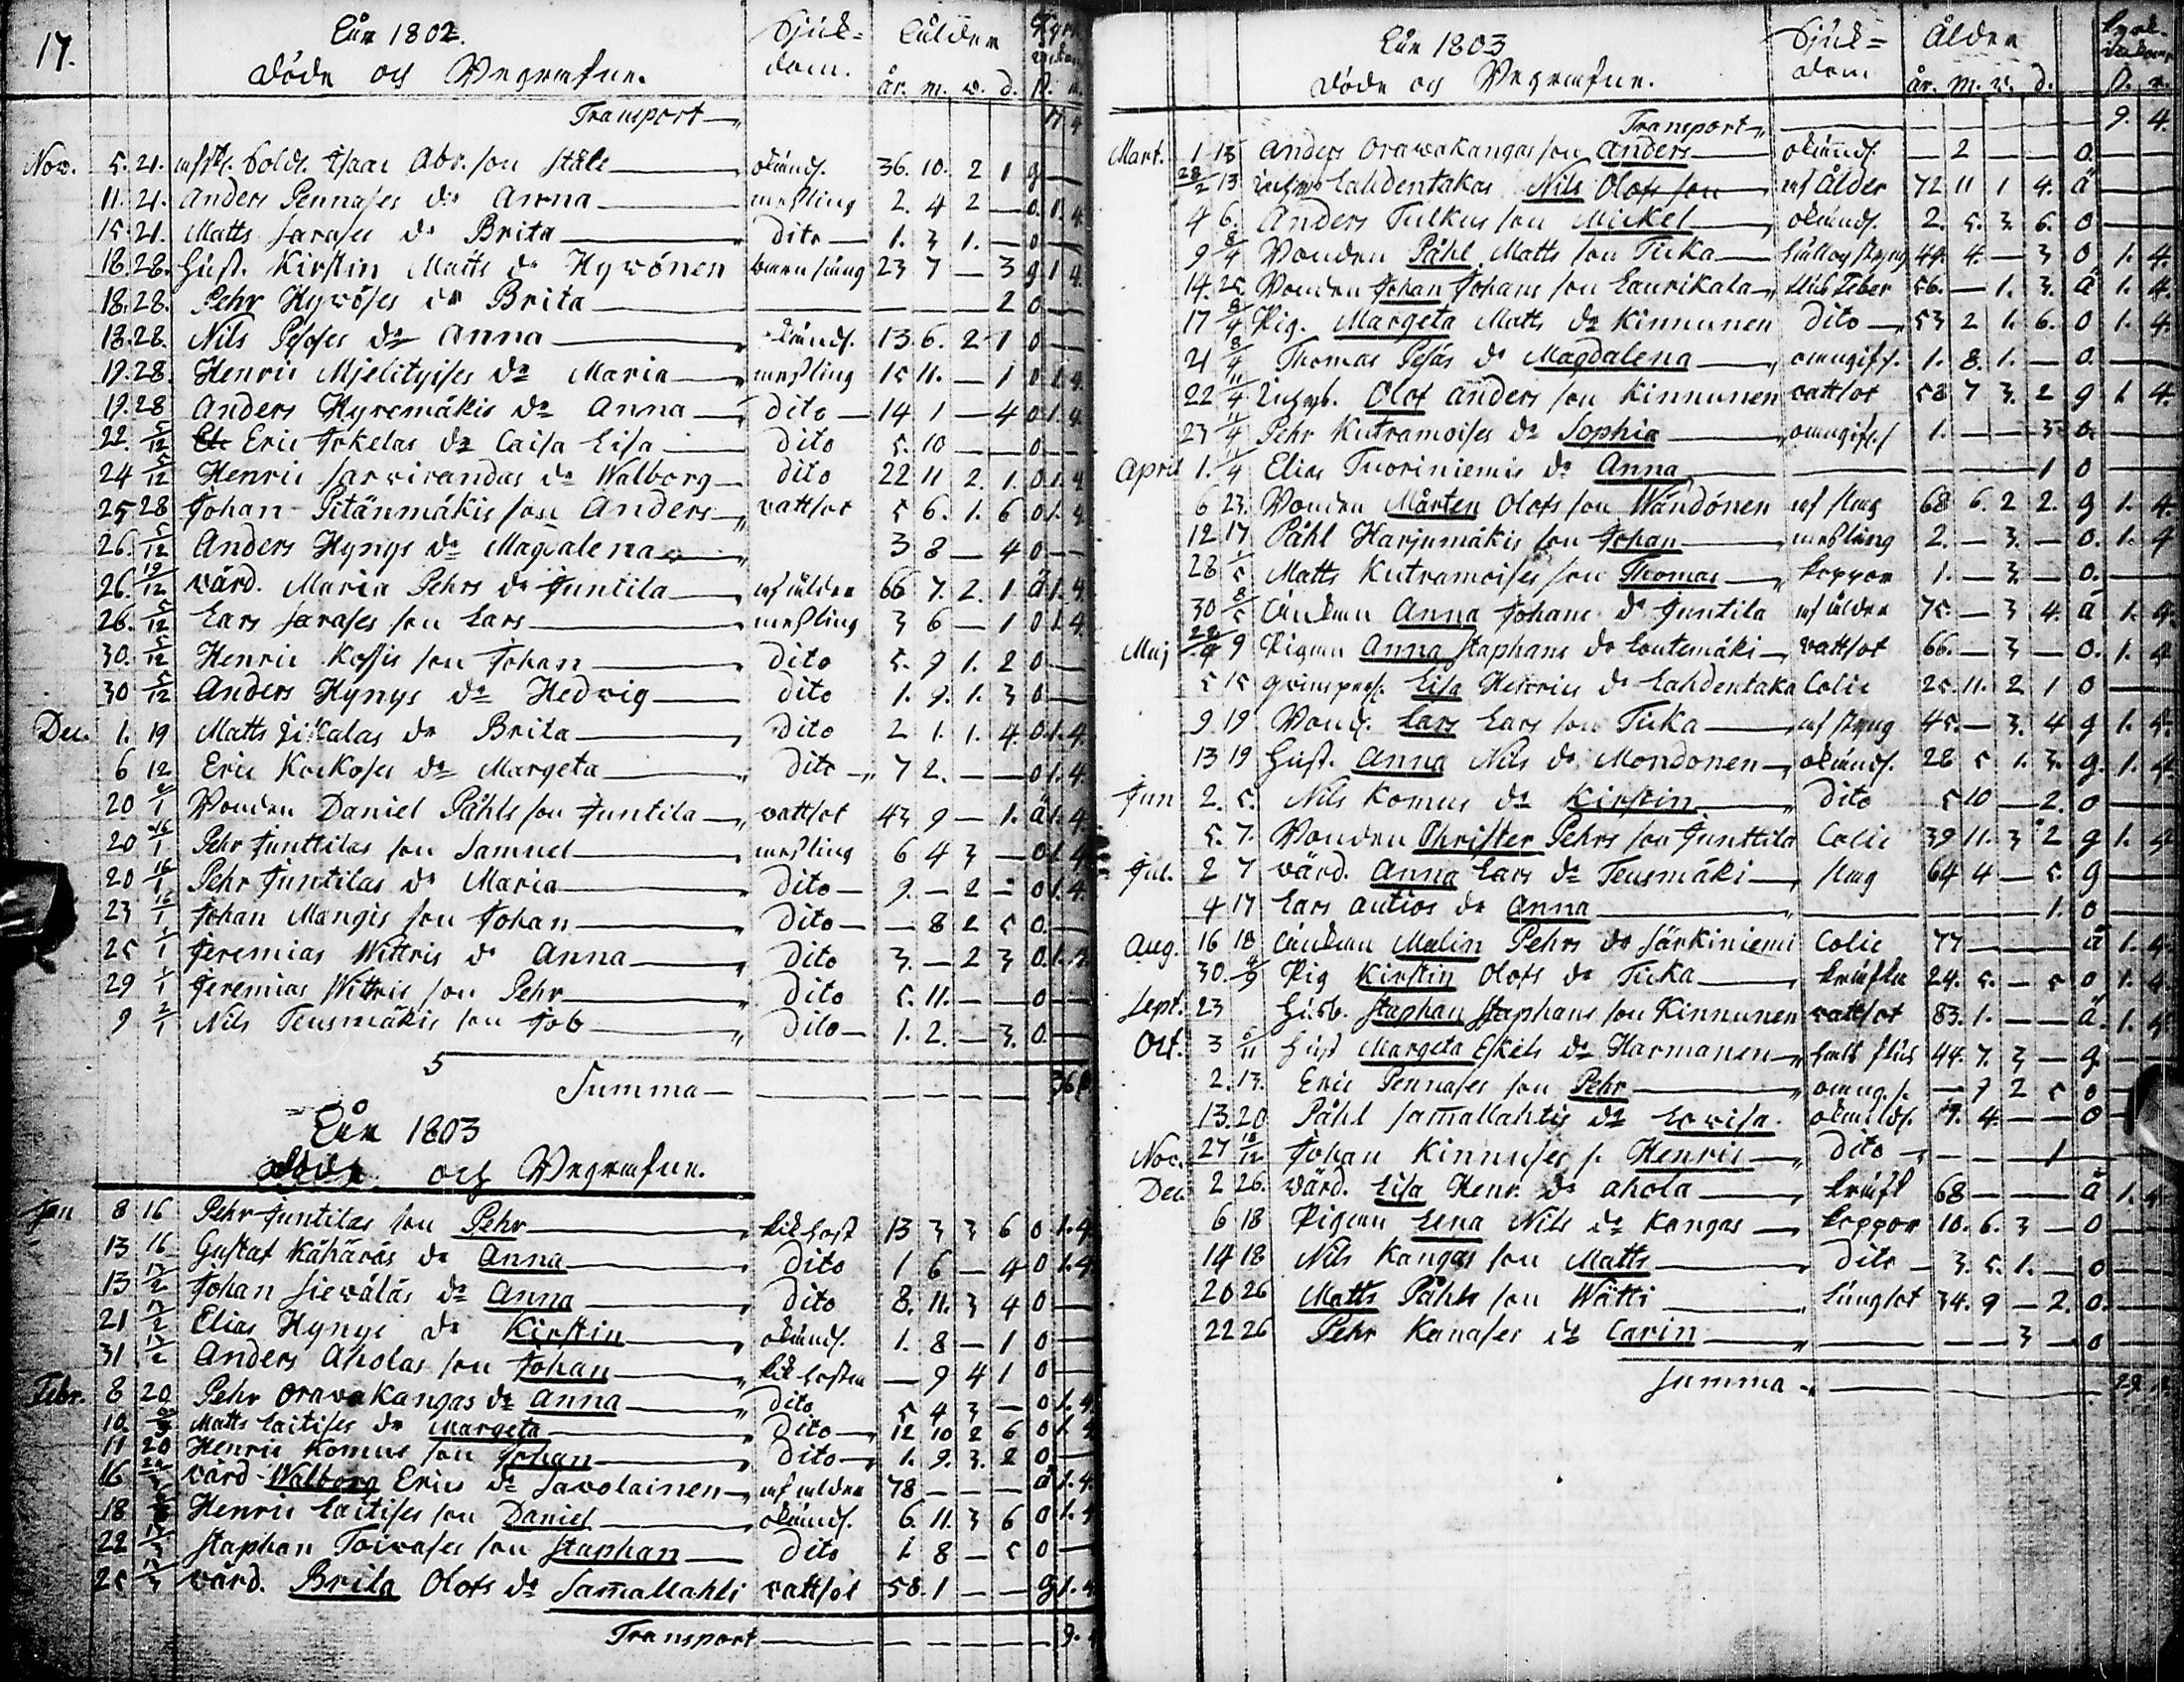 17.
Åår 1802.
Döde och Begrafne.
Sjuk-
dom.
Åldder
år. m. v. d.
Transport
Nov. 5. 21. afsk. Sold. Isaac Abr. son Ståle okänd. 36. 10. 2 1 g
11. 21. Anders Pennases dr Anna meßling 2. 4 2 — o. 1. 4
15. 21. Matts Sarases dr Brita dito 1. 3 1. — o
18. 28. Hust. Kirstin Matts dr Hyvönen barnsäng 23 7 — 3 g 1 4
18. 28. Pehr Hyvöses dr Brita — — — 2 o
18. 28. Nils Pesoses dr Anna okänd. 13. 6. 2. 1 o
19. 28. Henric Mjelityises dr Maria meßling 15 11. — 1 o 1. 4
19. 28 Anders Hyremäkis dr Anna dito 14 1 — 4 o 1. 4
22. 5/12 Eric Jokelas dr Caisa Lisa dito 5. 10 — — o
24 5/12 Henric Sarvirandas dr Walborg dito 22 11 2. 1. o 1. 4
25 28 Johan Pitänmäkis son Anders vattsot 5 6. 1. 6 o 1. 4
26. 5/12 Anders Hynys dr Magdalena 3 8 — 4 o
26. 19/12 värd. Maria Pehrs dr Juntila af ålder 66 7. 2. 1 ä 1. 4
26. 5/12 Lars Sarases son Lars meßling 3 6 — 1 o 1. 4
30. 5/12 Henric Kossis son Johan dito 5. 9 1. 2 o
30 5/12 Anders Hynys dr Hedvig dito 1. 9. 1. 3 o
Dec. 1. 19 Matts dr Brita dito 2 1. 1. 4. o 1. 4
6 12 Eric Kockoses dr Margeta dito 7 2. — — o 1. 4
20 Bonden Daniel Påhls son Juntila vattsot 43 9 — 1. ä 1. 4
20 16/1 Pehr Junttilas son Samuel meßling 6 4 3 — o 1. 4
20 16/1 Pehr Juntilas dr Maria dito 9. — 2 — o 1. 4.
23 16/1 Johan Mangis son Johan dito — 8 2 5 o.
25 1/1 Jeremias Wittris dr Anna dito 3. — 2 3 o.
29 1/1 Jeremias Wittris son Pehr dito 5. 11. — — o
9 2/1 Nils Teusmäkis son Job dito 1. 2. — 3. o.
5
Summa
Åår 1803
Döde och Begrafne.
Jan 8 16 Pehr Juntilas son Pehr kikhost 13 3 3 6 o 1. 4
13 16 Gustaf Kähäräs dr Anna dito 1 6 — 4 o 1. 4
13 13/2 Johan Sieväläs dr Anna dito 8. 11. 3 4 o
21 13/2 Elias Hynys dr Kirstin okänd. 1. 8 — 1 o
31 13/2 Anders Aholas son Johan kikhosta — 9 4 1 o
Febr. 8 20 Pehr Oravakangas dr Anna dito 5 4 3 — o 1. 4
10. Matts Laitises dr Margeta dito 12 10 2 6 o 1. 4
11 20 Henric Komus son Johan dito 1. 9. 3. 2 o
16 värd. Walborg Erics dr Savolainen af ålder 78 — — — ä 1. 4.
18 Henric Laitises son Daniel okänd. 6. 11. 3 6 o 1. 4
22 13/3 Staphan Toivases son Staphan dito 1 8 — 5 o
25 13/3 värd. Brita Olofs dr Samallahti vattsot 58. 1 — — g 1. 4
Transport 9.
Åår 1803
Döde och Begrafne.
Sjuk-
dom
Ålder
år. m. v. d.
Transport 9. 4.
Mart. 1 13 Anders Oravakangas son Anders okänd. — 2 — — o.
28/2 13 Lahdentakas Nils Olofs son af Ålder 72 11 1 4. ä
4 6. Anders Tulkus son Mickel okänd. 2. 5. 3. 6. o
9 8/4 Bonden Påhl Matts son Ticka håll och styng 44. 4. — 3 o 1. 4.
14. 25 Bonden Johan Johans son Laurikala Feber 56. — 1. 3. ä 1. 4.
17 8/4 Pig. Margeta Matts dr Kinnunen dito 53 2 1. 6. o 1. 4
21 8/4 Thomas Pesäs dr Magdalena 1. 8. 1. — o.
22 11/4 Inhys. Olof Anders son Kinnunen vattsot 58 7 3. 2 g 1 4.
23 11/4 Pehr Kutramoises dr Sophia 1. — — 3. o.
April 1. 11/4 Elias Tuoriniemis dr Anna — — — 1 o
6 23. Bonden Mårten Olofs son Wändönen af slag 68 6. 2 2. g 1. 4.
12 17 Påhl Harjumäkis son Johan meßling 2. — 3. — o. 1. 4
28 Matts Kutramoises son Thomas koppor 1. — 3. — o.
30 8/5 Änkan Anna Johans dr Juntila af ålder 75. — 3 4. ä 1. 4
Maj 9 Pigan Anna Staphans dr Lontemäki vattsot 66. — 3 — o. 1. 4
5 15 Lisa Henrics dr Lahdentaka Colic 25. 11. 2 1 o
9 19 Bond. Lars Lars son Ticka af styng 45. — 3. 4 g 1.
13 19 Hust. Anna Nils dr Mondonen okänd. 28 5 1. 3. g. 1.
Jun 2. 5. Nils Komus dr Kirstin dito 5 10 — 2. o
5. 7. Bonden Christer Pehrs son Junttila Colic 39 11. 3 2 g 1. 4
Jul. 2 7 värd. Anna Lars dr Teusmäki slag 64 4 — 5. g
4 17 Lars Autios dr Anna — — — 1. o
Aug. 16 18 Änkan Malin Pehrs dr Särkiniemi Colic 77 — — — ä 1. 4
30. 4/9 Pig Kirstin Olofs dr Ticka kräfta 24. 5. — 5 o 1. 4
Sept. 23 Husb. Staphan Staphans son Kinnunen vattsot 83. 1. — — ä. 1. 4
Oct. 3 6/11 Hust Margeta Eskels dr Harmanen 44. 7. 3 — g.
2. 13. Eric Pennases son Pehr — 9 2 5 o
13. 20 Påhl Samallahtis dr Lovisa okänd. 7. 4. — — o
Nov. 27 18/12 Johan Kinnuses s. Henric dito — — — 1
Dec 2 26. värd. Lisa Henr. dr Ahola kräft 68 — — — ä 1. 4
6 18 Pigan Lena Nils dr Kangas koppor 10. 6. 3 — o
14 18 Nils Kangas son Matts dito 3. 5. 1. — o
20 26 Matts Påhls son Wätti lungsot 34. 9 — 2. o.
22 26 Pehr Kanases dr Carin — — 3 — o
Summa 29